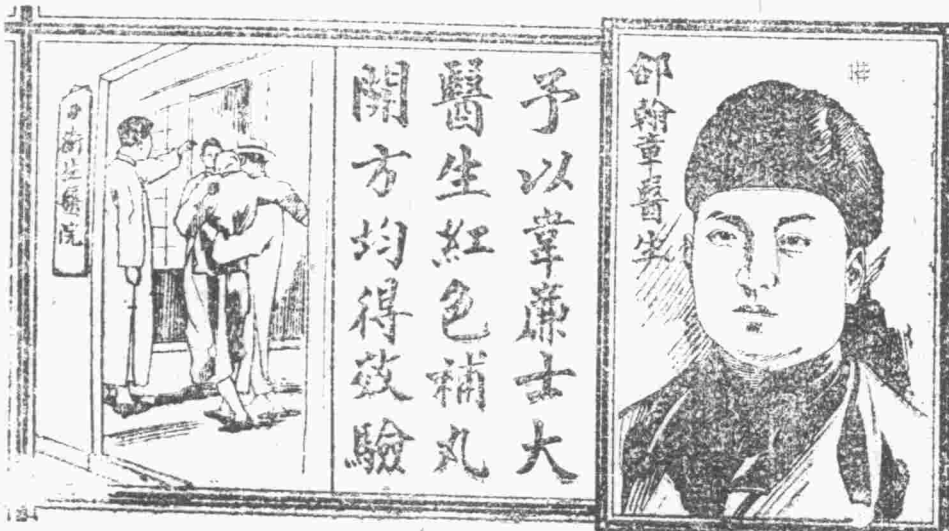 郤翰章醫生
予以韋廉士大
醫生紅色補丸
開方均得效驗
衛生醫院